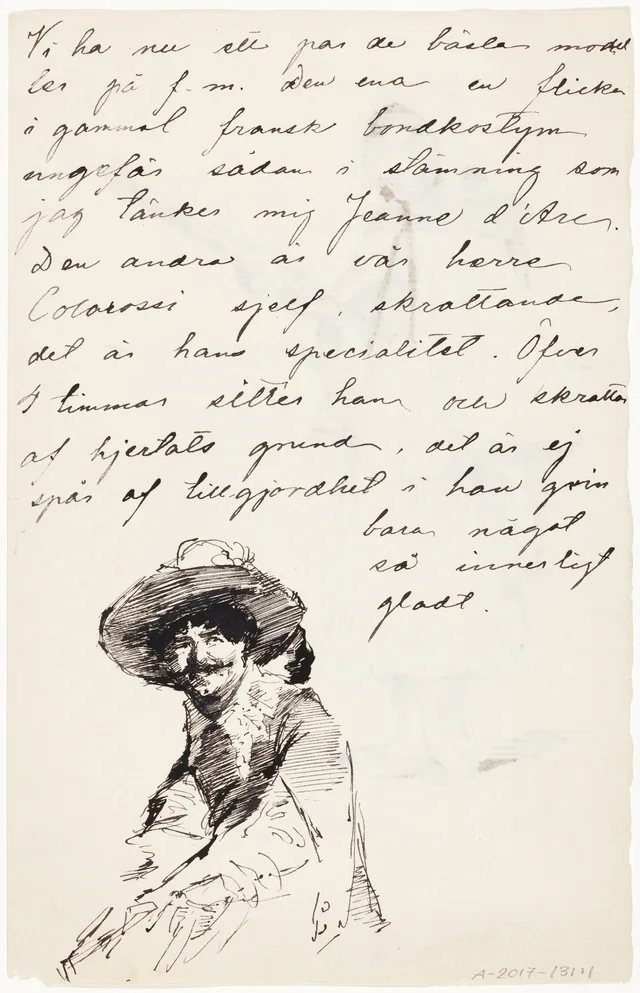 Vi ha nu ett par de bästa model
ler på f.m. Den ena en flicka
i gammal fransk bondkostym
ungefär sådan i stämning som
jag tänker mig Jeanne d'Arc.
Den andra är vår herre
Colarossi sjelf, skrattande,
det är hans specialitet. Öfver
4 timmar sitter han och skrattar
af hjertats grund, det är ej
spår af tillgjordhet i han grin
bara något
så innerligt
gladt.
A-2017-131:1